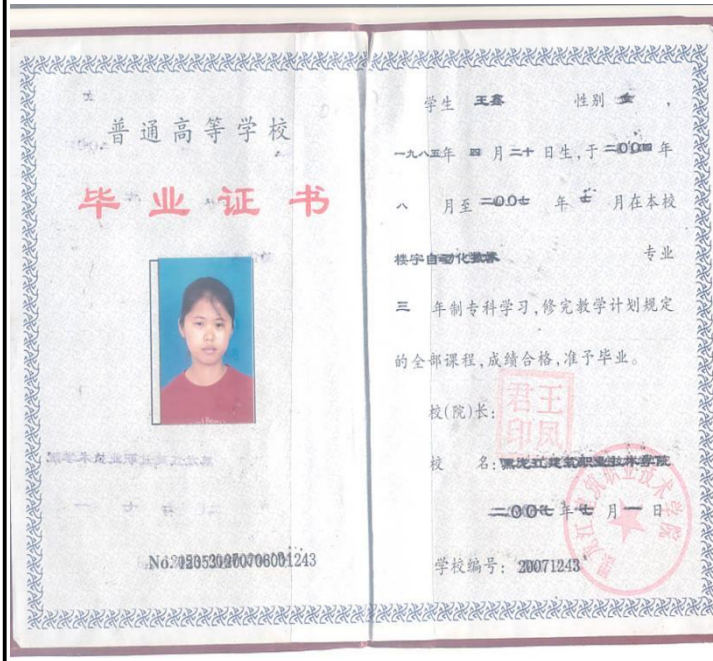 普通高等学校
毕业证书
学生 王鑫 性别 女 ,
一九八五年 四 月二十 日生,于二00四年
八 月至二00七 年 七 月在本校
楼宇自动化技术 专业
三 年制专科学习,修完教学计划规定
的全部课程,成绩合格,准予毕业。
校(院)长:
王凤君印
校 名:黑龙江建筑职业技术学院
二00七年七月一日
学校编号:20071243
黑龙江建筑职业技术学院